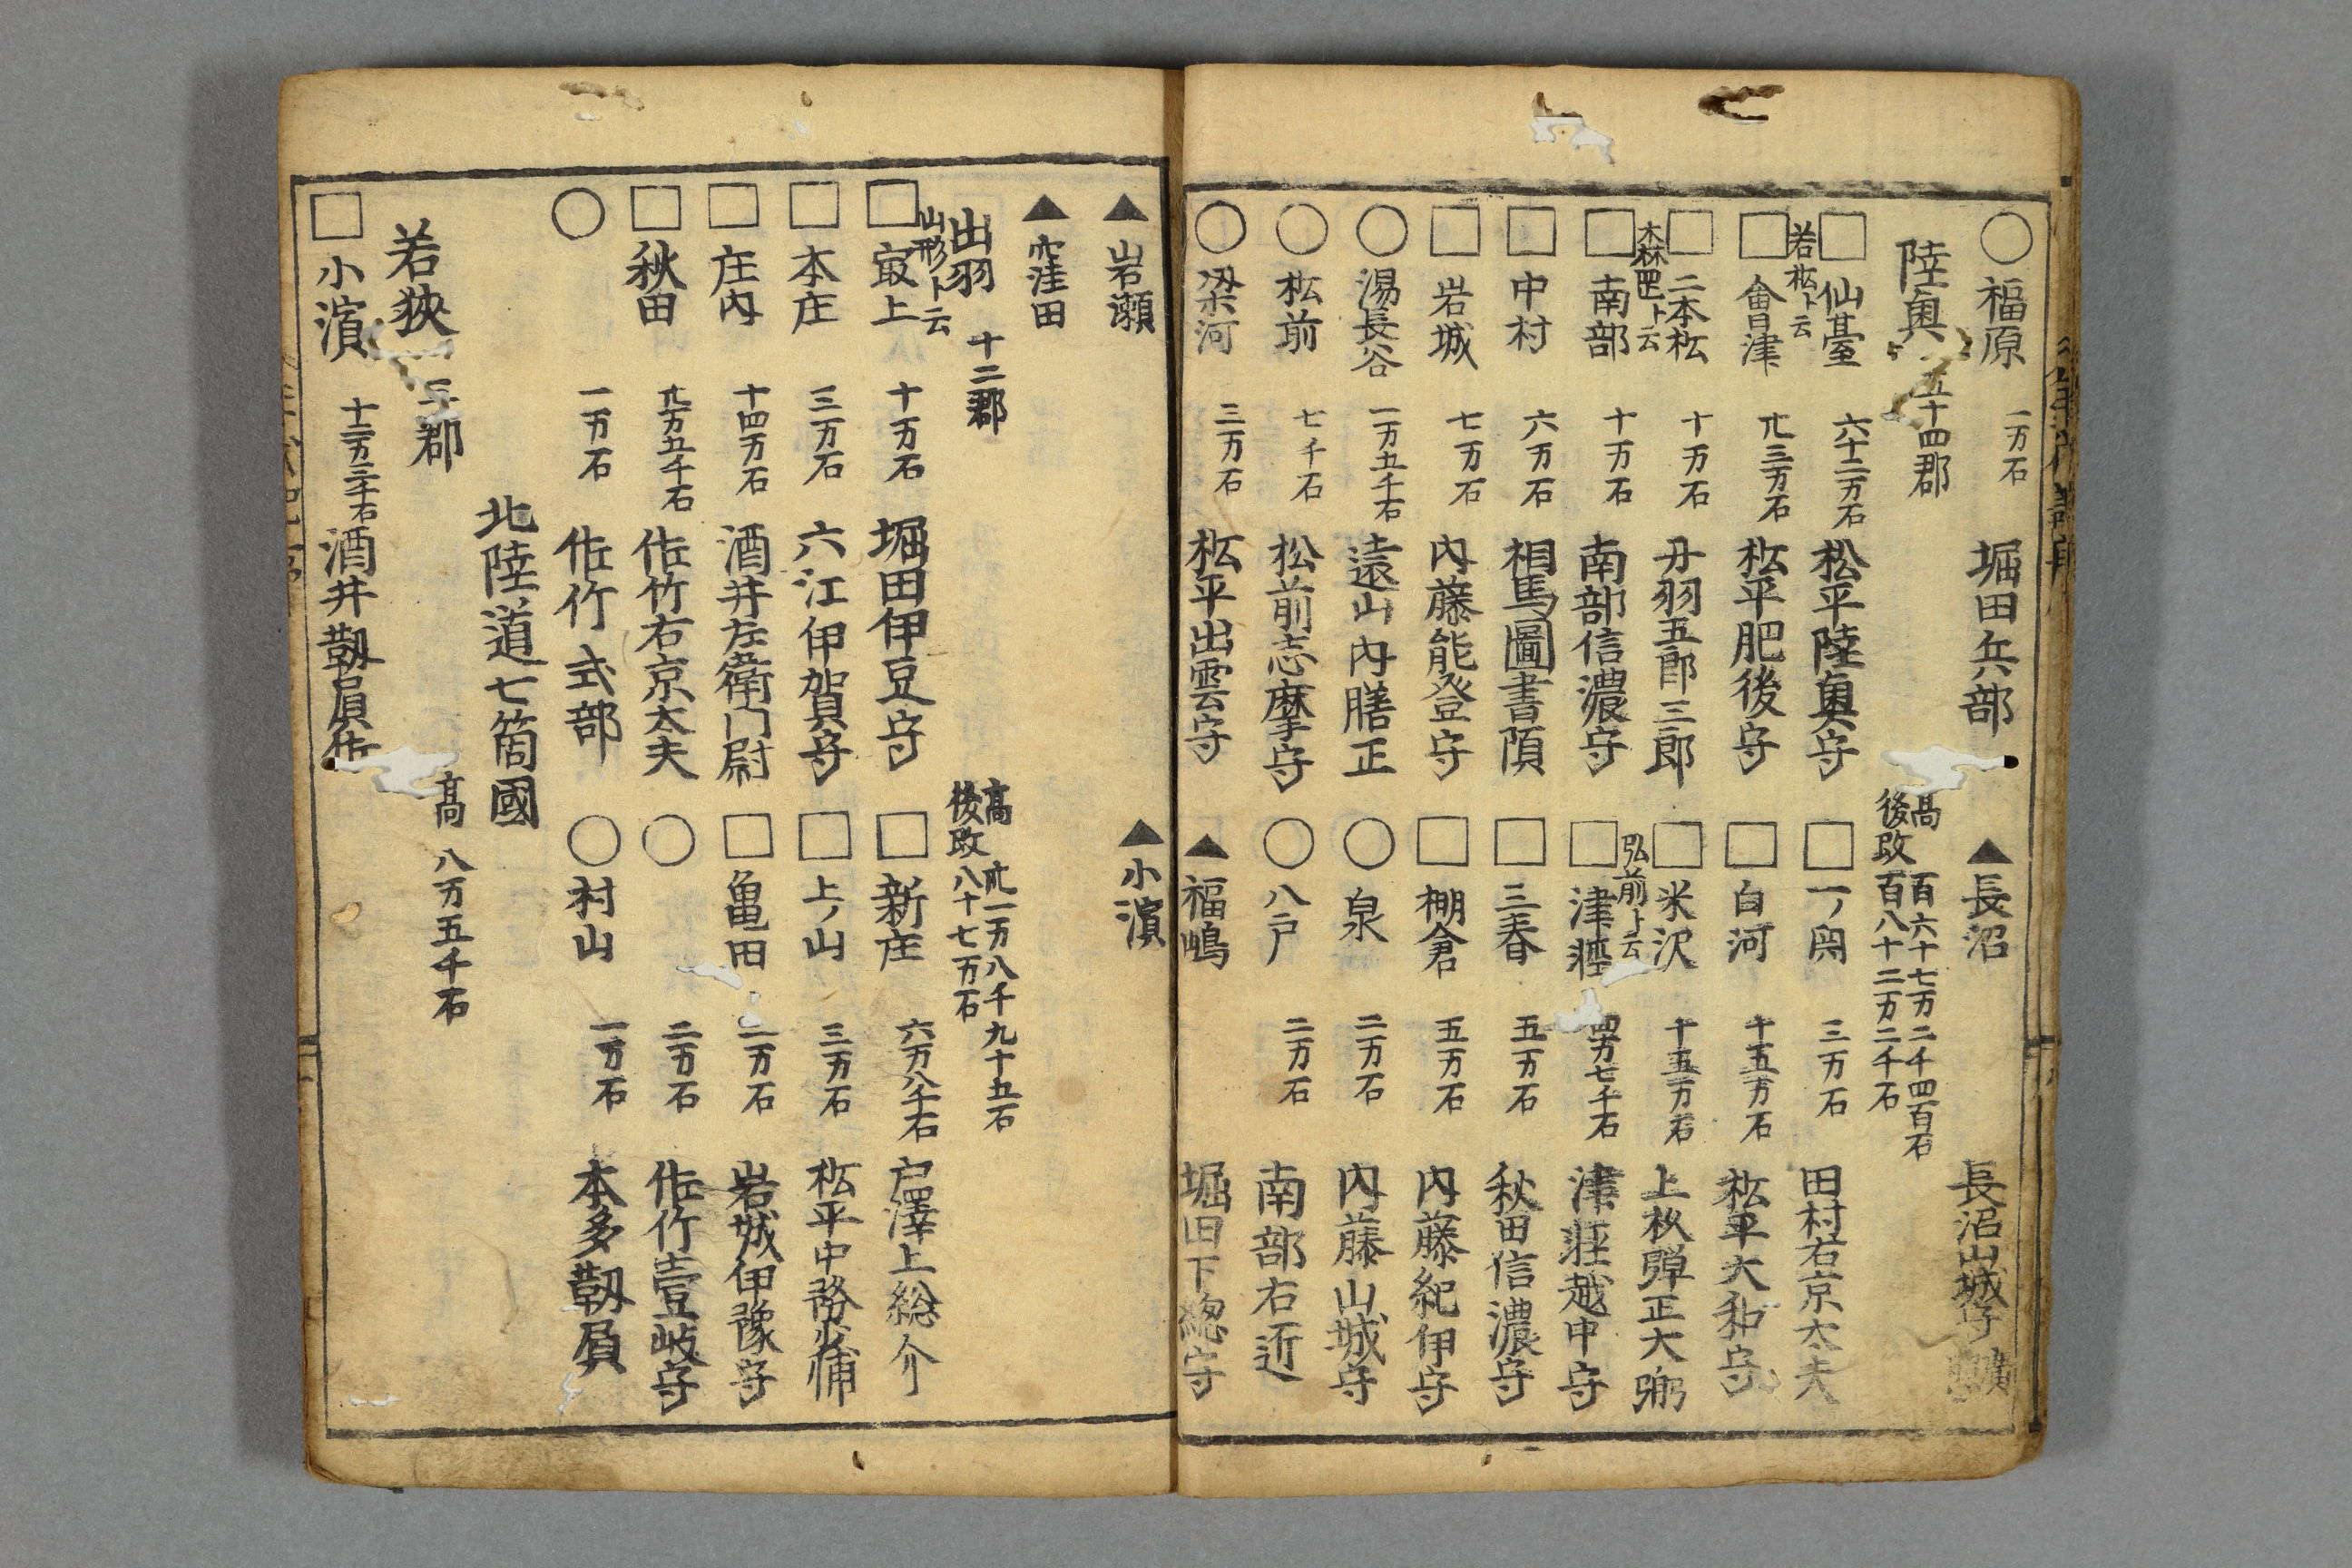 ○ 福原 一万石 堀田兵部
▲ 長沼 長沼山城守
陸奥 五十四郡
高 百六十七万二千四百石
後改 百八十二万二千石
□ 仙臺 六十二万石 松平陸奥守
□ 一ノ関 三万石 田村右京太夫
若松ト云
□ 會津 卄三万石 松平肥後守
□ 白河 十五万石 松平大和守
□ 二本松 十万石 丹羽五郎三郎
□ 米沢 十五万石 上杦弾正大弼
□ 南部 十万石 南部信濃守
弘前ト云
□ 津軽 四万七千石 津軽越中守
□ 中村 六万石 相馬圖書頭
□ 三春 五万石 秋田信濃守
□ 岩城 七万石 内藤能登守
□ 棚倉 五万石 内藤紀伊守
○ 湯長谷 一万五千石 遠山内膳正
○ 泉 二万石 内藤山城守
○ 松前 七千石 松前志摩守
○ 八戸 二万石 南部右近
○ 梁河 三万石 松平出雲守
▲ 福嶋 堀田下総守
▲ 岩瀬
▲ 小濱
▲ 窪田
出羽 十二郡
高 卅一万八千九十五石
後改 八十七万石
山形ト云
□ 最上 十万石 堀田伊豆守
□ 新庄 六万八千石 戸澤上総介
□ 本庄 三万石 六江伊賀守
□ 上ノ山 三万石 松平中務少輔
□ 庄内 十四万石 酒井左衛門尉
□ 亀田 二万石 岩城伊豫守
□ 秋田 卄万五千石 佐竹右京太夫
○ 二万石 佐竹壹岐守
○ 一万石 佐竹式部
○ 村山 一万石 本多靱屓
北陸道七箇國
若狭 三郡
高 八万五千石
□ 小濱 十二万三千石 酒井靱屓佐